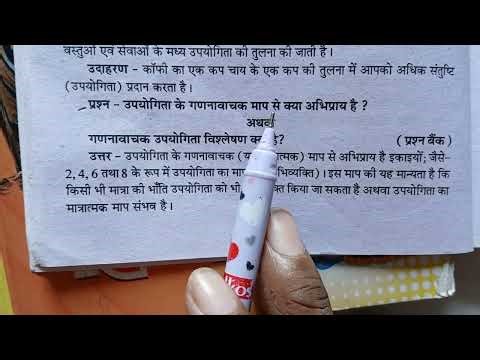 वस्तुओं एवं सेवाओं के मध्य उपयोगिता की तुलना की जाती है।
उदाहरण – कॉफी का एक कप चाय के एक कप की तुलना में आपको अधिक संतुष्टि
(उपयोगिता) प्रदान करता है।
प्रश्न – उपयोगिता के गणनावाचक माप से क्या अभिप्राय है ?
अथवा
गणनावाचक उपयोगिता विश्लेषण क्या है? ( प्रश्न बैंक )
उत्तर – उपयोगिता के गणनावाचक माप से अभिप्राय है इकाइयों; जैसे–
2, 4, 6 तथा 8 के रूप में उपयोगिता का इस माप की यह मान्यता है कि
किसी भी मात्रा की भाँति उपयोगिता को भी किया जा सकता है अथवा उपयोगिता का
मात्रात्मक माप संभव है।